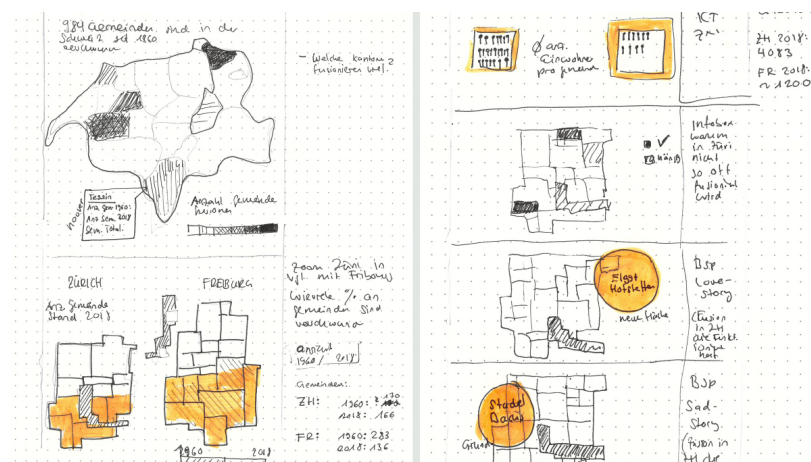 984 Gemeinden sind in der
Schweiz seit 1960
verschwunden
- Welche Kantone
fusionieren viel.
Tessin
Anz Gem 1960:
Anz Gem. 2018
Gem. Total.
hoover
Anzahl Gemeinde
fusionen
ZÜRICH
Anz Gemeinde
Stand 2018
FREIBURG
1960 2018
Zoom Züri in
Vgl mit Fribourg
wieviele % an
Gemeinden sind
verschwunden
ansicht
1960 / 2018
Gemeinden:
ZH: 1960: 170
2018: 166
FR: 1960: 283
2018: 136
Ø anz.
Einwohner
pro Gemeinde
ICT
ZH 2018:
4083
FR 2018:
~ 1200
Infobox
warum
in Züri
nicht
so oft
fusioniert
wird
Elgg
Hofstetten
neue Fläche
Bsp
Love-
Story
(Fusion
in ZH
Stadel
Bachs
Bsp
Sad-
Story
(Fusion in
ZH